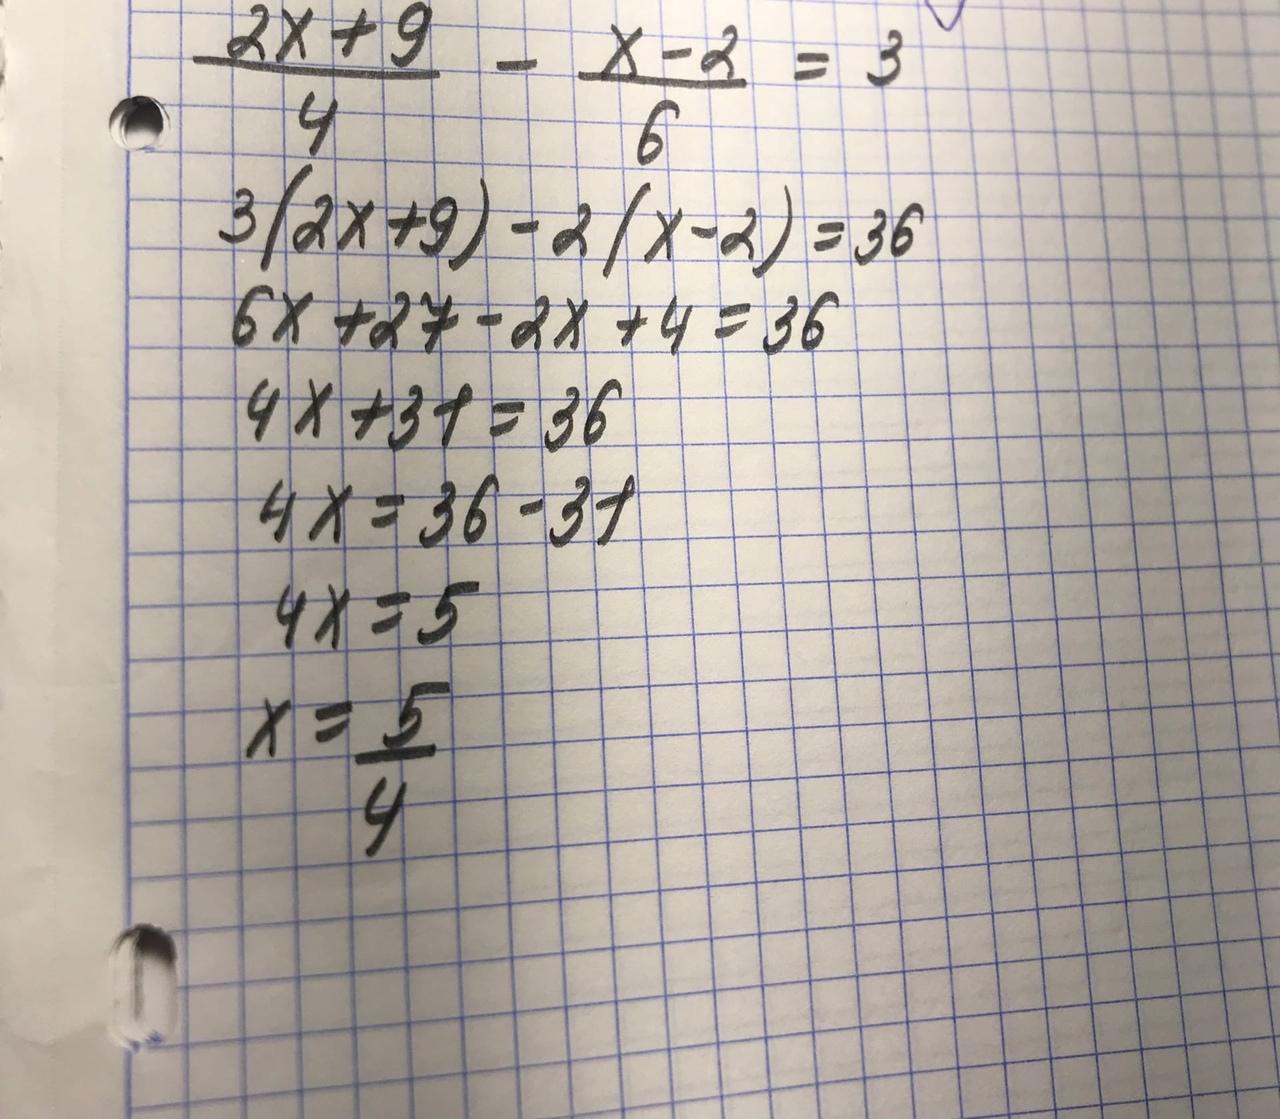 2x+9/4 - x-2/6 = 3
3(2x+9)-2(x-2)=36
6x+27-2x+4=36
4x+31=36
4x=36-31
4x=5
x=5/4